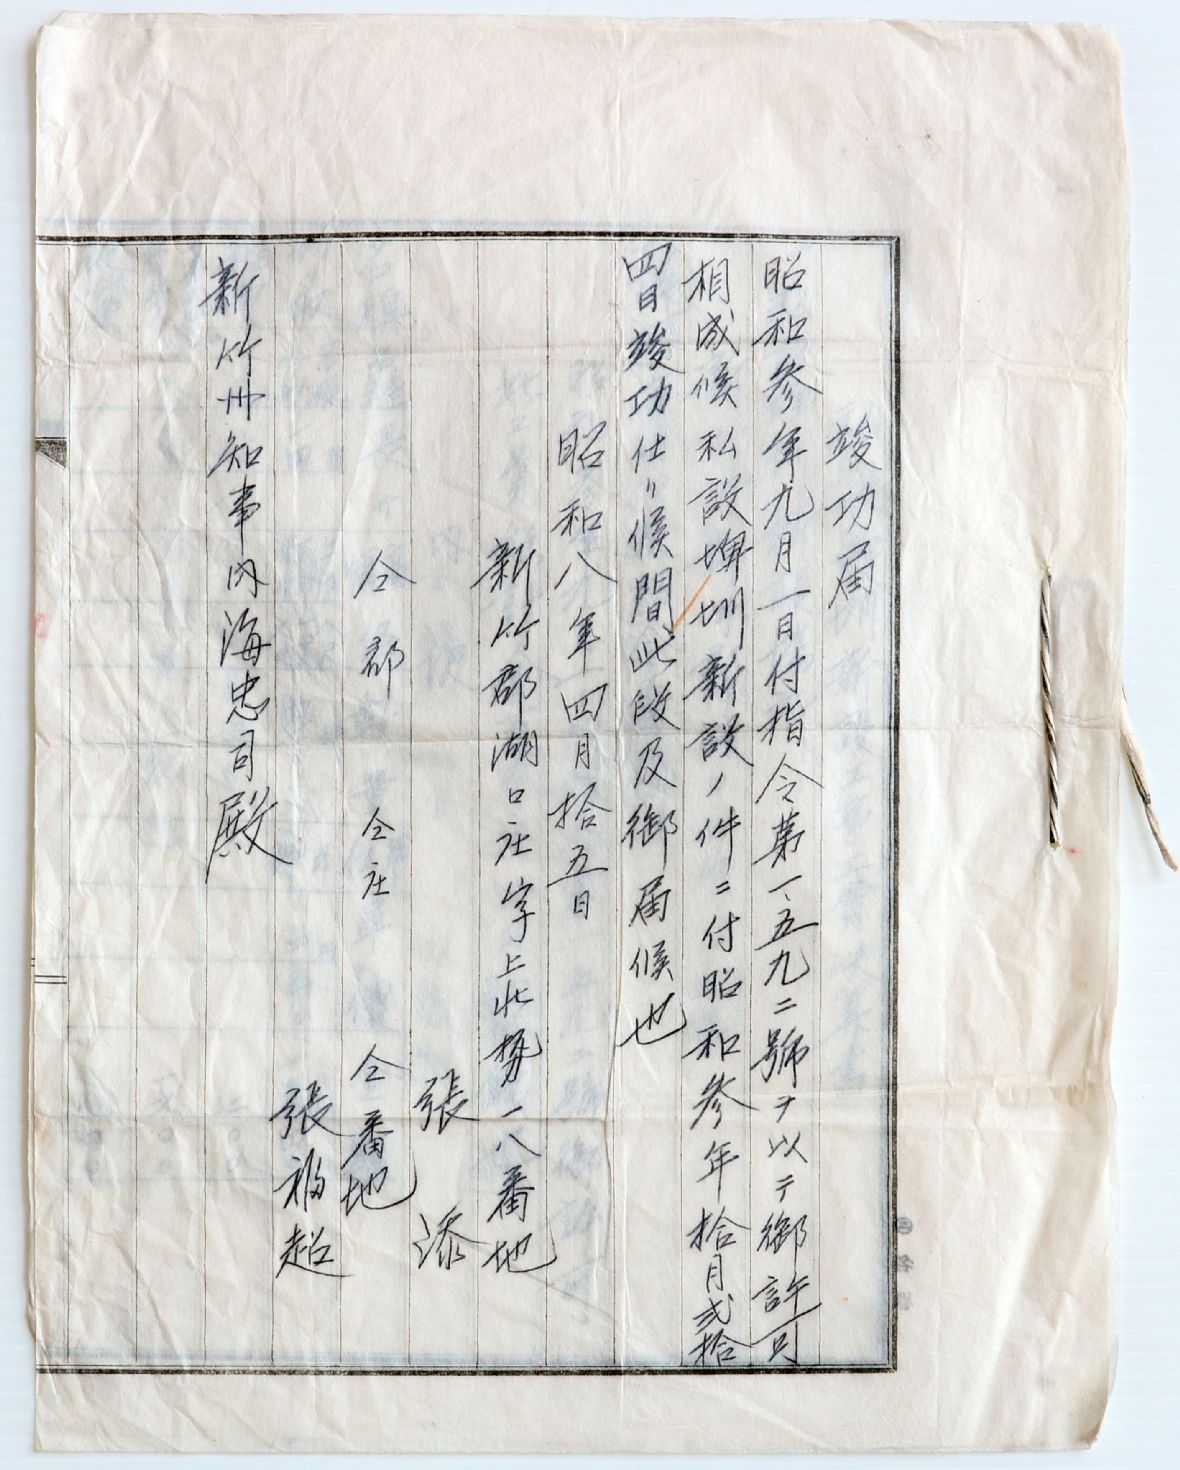 竣功届
昭和參年九月一日付指令第一、五九二號ヲ以テ御許可
相成候私設埤圳新設ノ件ニ付昭和參年拾月弍拾
四日竣功仕リ候間此段及御届候也
昭和八年四月拾五日
新竹郡湖口庄字上北勢一八番地
張 添
仝郡 仝庄 仝番地
張福超
新竹州知事内海忠司殿